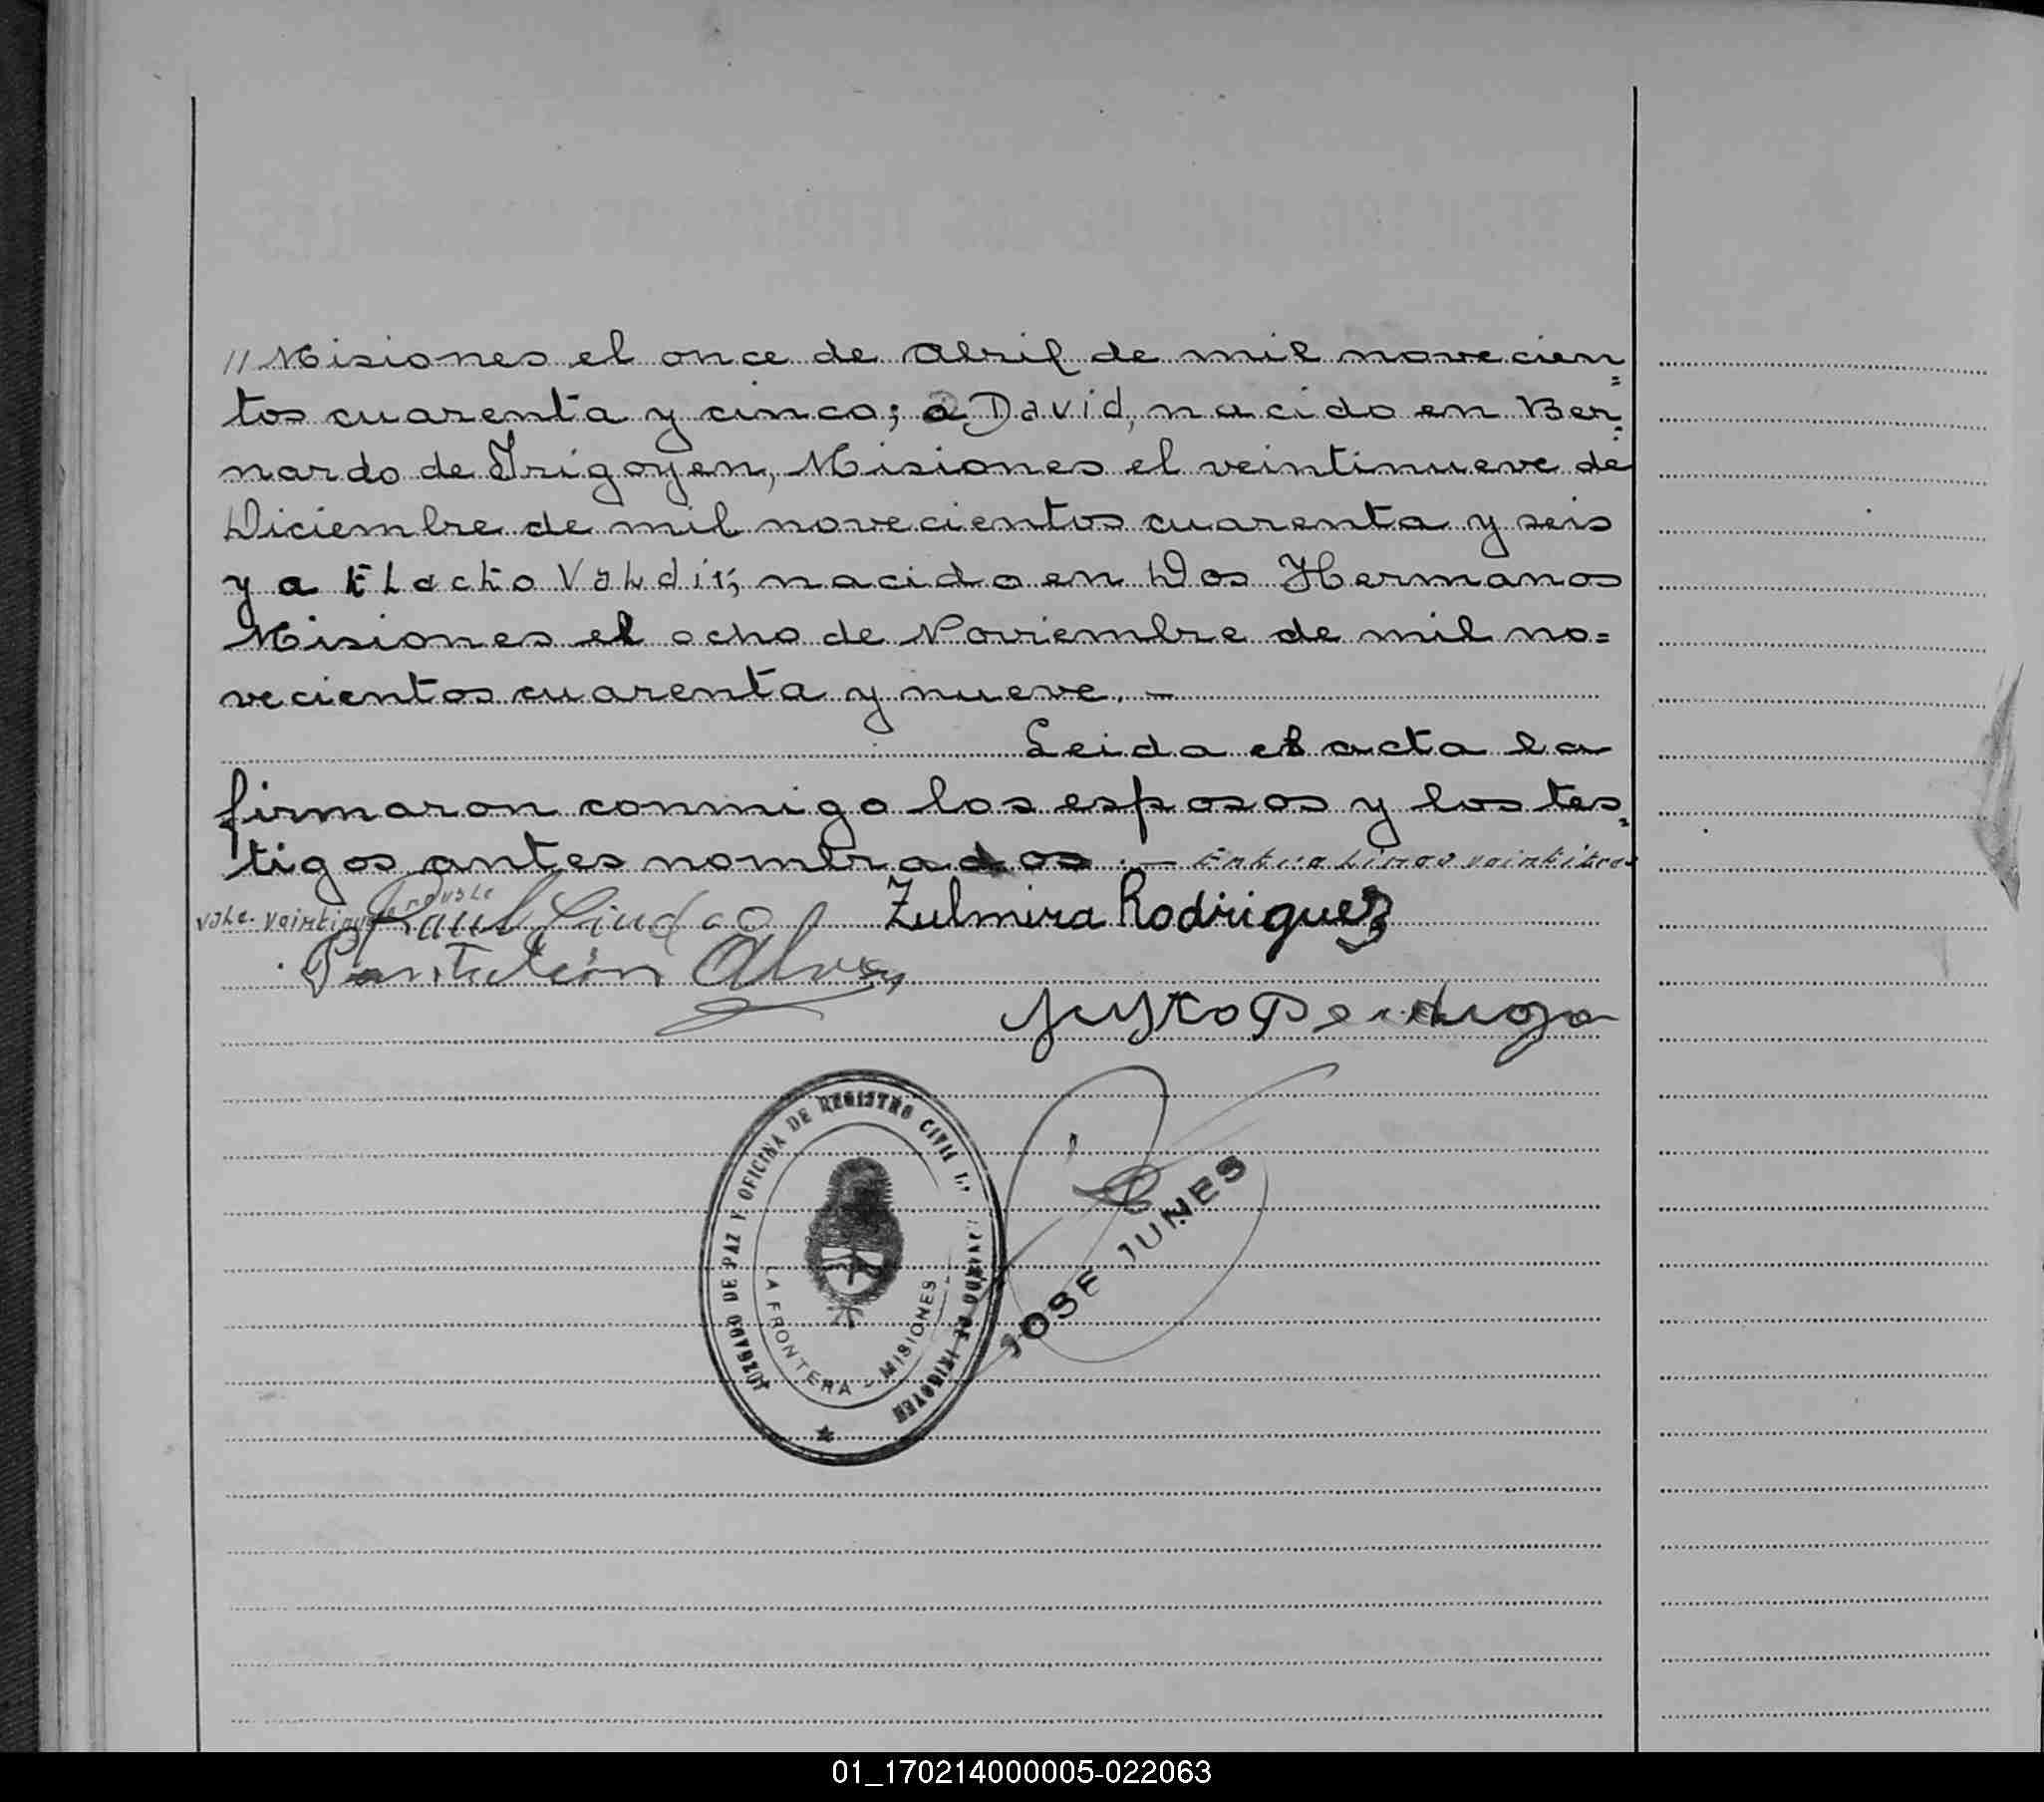 // Misiones el once de Abril de mil novecien=
tos cuarenta y cinco; a David, nacido en Ber=
nardo de Irigoyen, Misiones el veintinueve de
Diciembre de mil novecientos cuarenta y seis
y a Elacho Valdir; nacido en Dos Hermanos
Misiones el ocho de Noviembre de mil no=
vecientos cuarenta y nueve. —
Leida el acta la
firmaron conmigo los esposos y los tes=
tigos antes nombrados. — Entre lineas veintitres
vale. no vale
Raul Zulmira Rodriguez
Pantaleón Alvez
Justo
JUZGADO DE PAZ Y OFICINA DE REGISTRO CIVIL DE IRIGOYEN
LA FRONTERA - MISIONES
JOSE JUNES
01_170214000005-022063